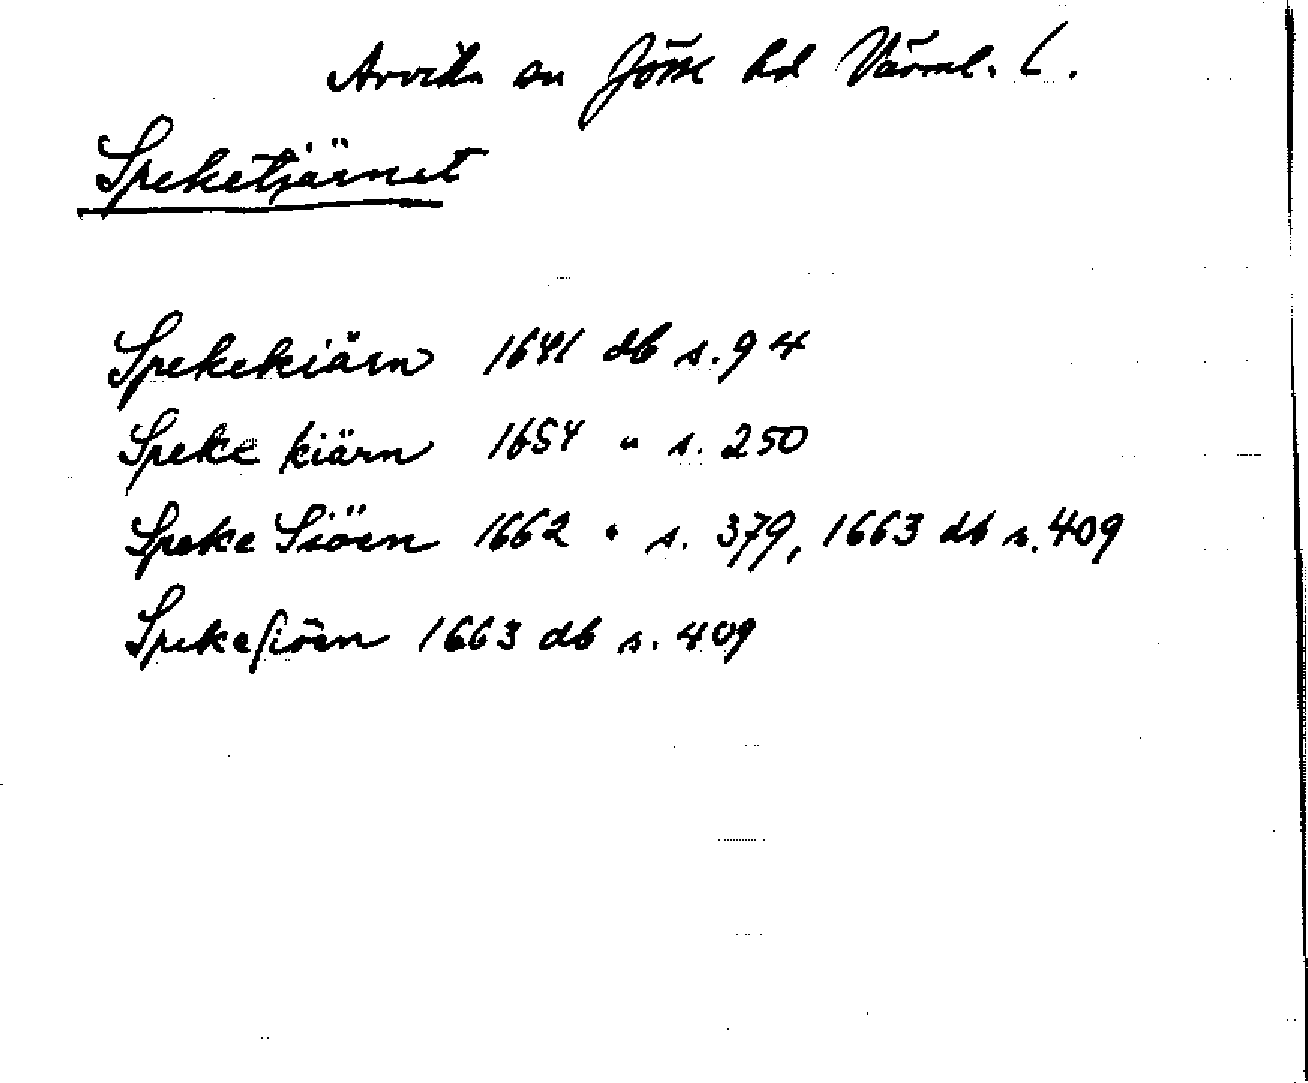 Arvika sn Jösse hd Värml. l.
Speketjärnet
Spekekiärn 1641 db s. 94
Speke kiärn 1654 " s. 250
Speke Siöen 1662 " s. 379, 1663 db s. 409
Spekesiöen 1663 db s. 409